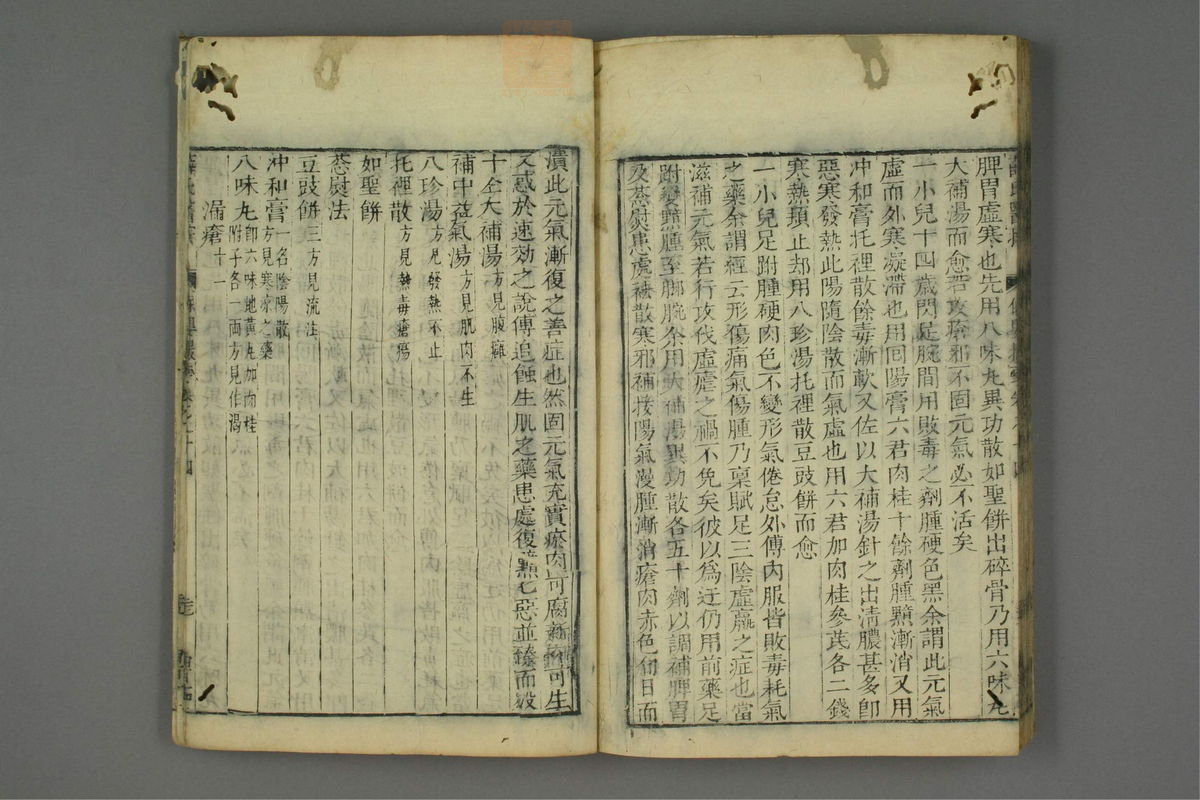 脾胃虛寒也先用八味丸異功散如聖餅出碎骨乃用六味丸
大補湯而愈若攻瘡邪不固元氣必不活矣
一小兒十四歲閃足腕間用敗毒之劑腫硬色黑余謂此元氣
虛而外寒凝滯也用回陽膏六君肉桂十餘劑腫黯漸消又用
冲和膏托裡散餘毒漸軟又佐以大補湯針之出清膿甚多卽
惡寒發熱此陽隨陰散而氣虛也用六君加肉桂參芪各二錢
寒熱頓止却用八珍湯托裡散豆豉餅而愈
一小兒足跗腫硬肉色不變形氣倦怠外傅內服皆敗毒耗氣
之藥余謂經云形傷痛氣傷腫乃稟賦足三陰虛羸之症也當
滋補元氣若行攻伐虛虛之禍不免矣彼以爲迂仍用前藥足
跗變黯腫至脚腕余用大補湯異功散各五十劑以調補脾胃
及葱熨患處祛散寒邪補接陽氣漫腫漸消瘡肉赤色旬日而
潰此元氣漸復之善症也然固元氣充實瘀肉可腐新肉可生
又惑於速効之說傅追蝕生肌之藥患處復黯七惡並臻而歿
十全大補湯方見腹癰
補中益氣湯方見肌肉不生
八珍湯方見發熱不止
托裡散方見熱毒瘡瘍
如聖餅
葱熨法
豆豉餅三方見流注
冲和膏一名陰陽散
方見寒凉之藥
八味丸卽六味地黃丸加肉桂
附子各一兩方見作渴
漏瘡十一